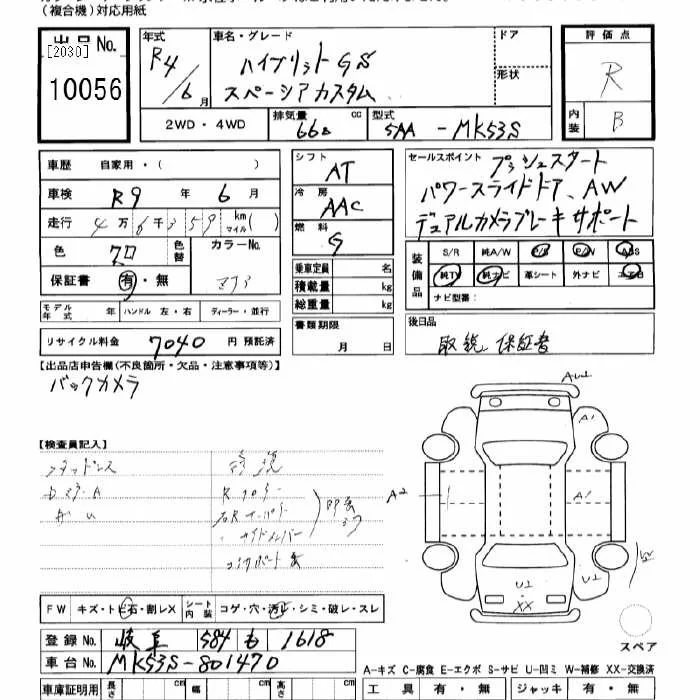 (複合機)対応用紙
出品No.
[2030]
10056
年式
R4/6月
車名・グレード
ハイブリットGS
スペーシアカスタム
ドア
形状
評価点
R
内装
B
2WD・4WD
排気量
660 cc
型式
5AA - MK53S
車歴 自家用・( )
車検 R9 年 6 月
走行 4万6千359 km マイル( )
色 クロ 色替 カラーNo.
保証書 有・無
モデル年式 年 ハンドル 左・右 ディーラー・並行
リサイクル料金 7040 円 預託済
シフト
AT
冷房
AAC
燃料
G
乗車定員 名
積載量 kg
総重量 kg
書類期限
月 日
セールスポイント プッシュスタート
パワースライドドア、AW
デュアルカメラブレーキサポート
装備品
S/R 純A/W P/S P/W ABS
純TV 純ナビ 革シート 外ナビ エアB
ナビ型番:
後日品
取説 保証書
【出品店申告欄(不良箇所・欠品・注意事項等)】
バックカメラ
【検査員記入】
スタッドレス
R フロアー
サイドメンバー
A2
A1
A1
A1
U2
U2
XX
W
スペア
FW キズ・トビ石・割レX シート内装 コゲ・穴・汚レ・シミ・破レ・スレ
登録No. 岐阜 584 も 1618
車台No. MK53S-801470
車庫証明用 長さ cm 幅 cm 高さ cm
A-キズ C-腐食 E-エクボ S-サビ U-凹ミ W-補修 XX-交換済
工具 有・無 ジャッキ 有・無